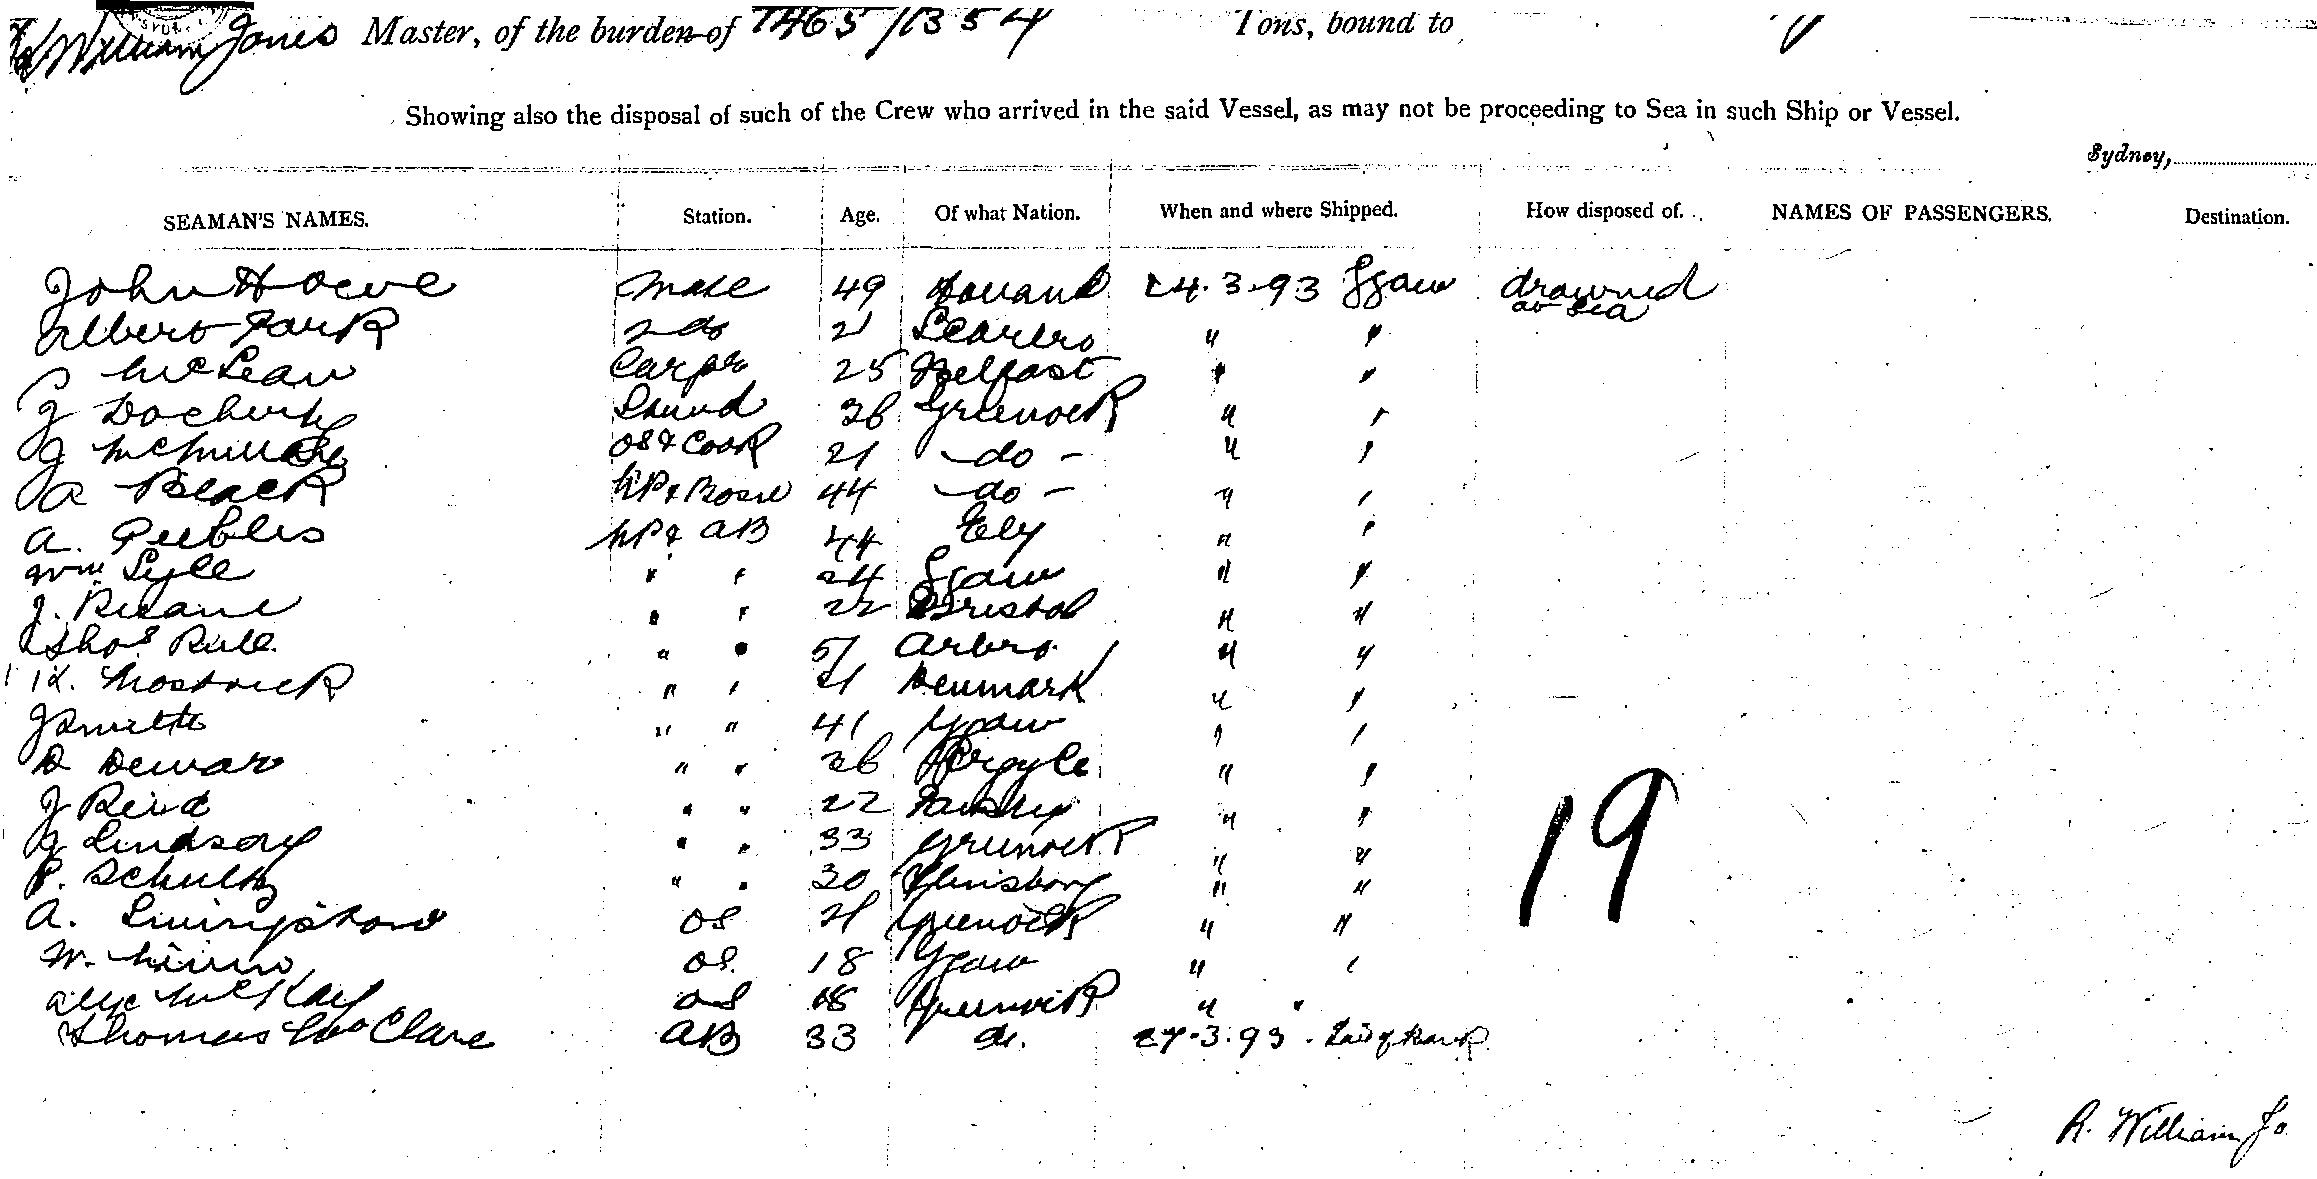 William Jones Master, of the burden of 1465/1354 Tons, bound to
Showing also the disposal of such of the Crew who arrived in the said Vessel, as may not be proceeding to Sea in such Ship or Vessel.
Sydney,
SEAMAN'S NAMES. Station. Age. Of what Nation. When and where Shipped. How disposed of. NAMES OF PASSENGERS. Destination.
John Howe Mate 49 24.3.93 Ggaw drowned at sea
Albert Park 2 do 21 " "
McLean Carpr 25 Belfast " "
J Docherty 36 Greenock " "
J OS & Cook 21 - do - " "
A Black & Bosn 44 - do - " "
A. Peebles & AB 44 Ely " "
Wm Lyle " " 24 Ggaw " "
J. " " 22 Bristol " "
Thos Rule " " 51 Arbro " "
" " 21 Denmark " "
J Smith " " 41 Ggaw " "
D Dewar " " 36 Argyle " "
J Reid " " 22 Paisley " "
J Lindsay " " 33 Greenock " "
P. Schultz " " 30 " "
A. Livingstone OS 21 Greenock " "
W. OS. 18 Ggaw " "
Alex McKay OS 18 Greenock " "
Thomas McClare AB 33 do. 27.3.93. Tail of Bank
19
R. William Jo